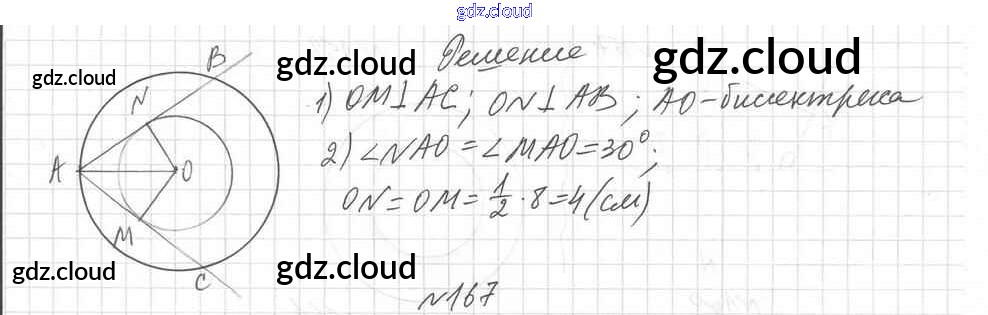 gdz.cloud
Решение
gdz.cloud gdz.cloud gdz.cloud
1) OM⊥AC; ON⊥AB; AO-биссектриса
2) ∠NAO=∠MAO=30°;
ON=OM=1/2·8=4(см)
B
N
A
O
M
C
gdz.cloud gdz.cloud
№167